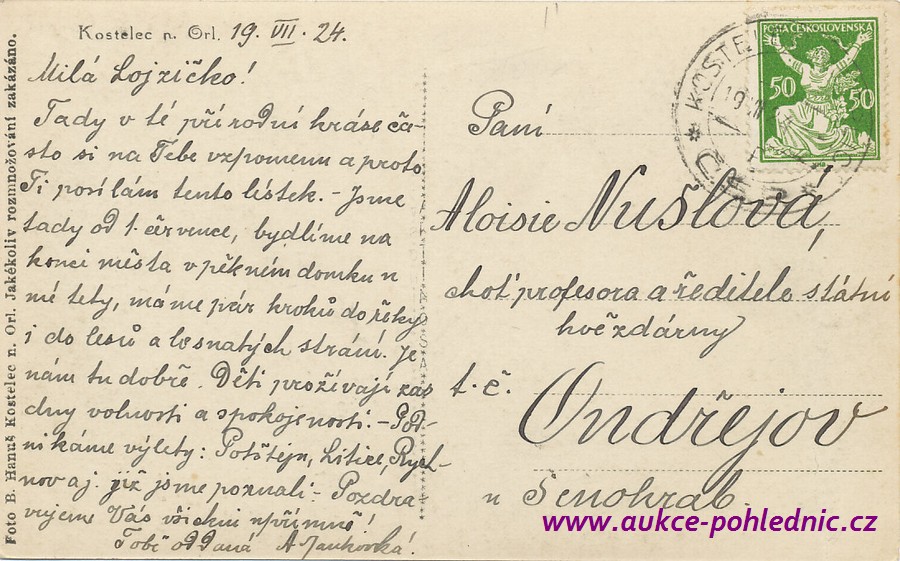 Kostelec n. Orl. 19. VII. 24.
Milá Lojzičko!
Tady v té přírodní kráse ča-
sto si na Tebe vzpomenu a proto
Ti posílám tento lístek. - Jsme
tady od 1. července, bydlíme na
konci města v pěkném domku u
mé tety, máme pár kroků do řeky
i do lesů a lesnatých strání. Je
nám tu dobře. Děti prožívají zas
dny volnosti a spokojenosti. - Pod-
nikáme výlety: Potštejn, Litice, Rych-
nov aj. již jsme poznali - Pozdra-
vujeme Vás všichni upřímně!
Tobě oddaná
Foto B. Hanuš Kostelec n. Orl. Jakékoliv rozmnožování zakázáno.
POŠTA ČESKOSLOVENSKÁ
50 50
Paní
Aloisie Nušlová,
choť profesora a ředitele státní
hvězdárny
t. č.
Ondřejov
u Senohrab.
www.aukce-pohlednic.cz